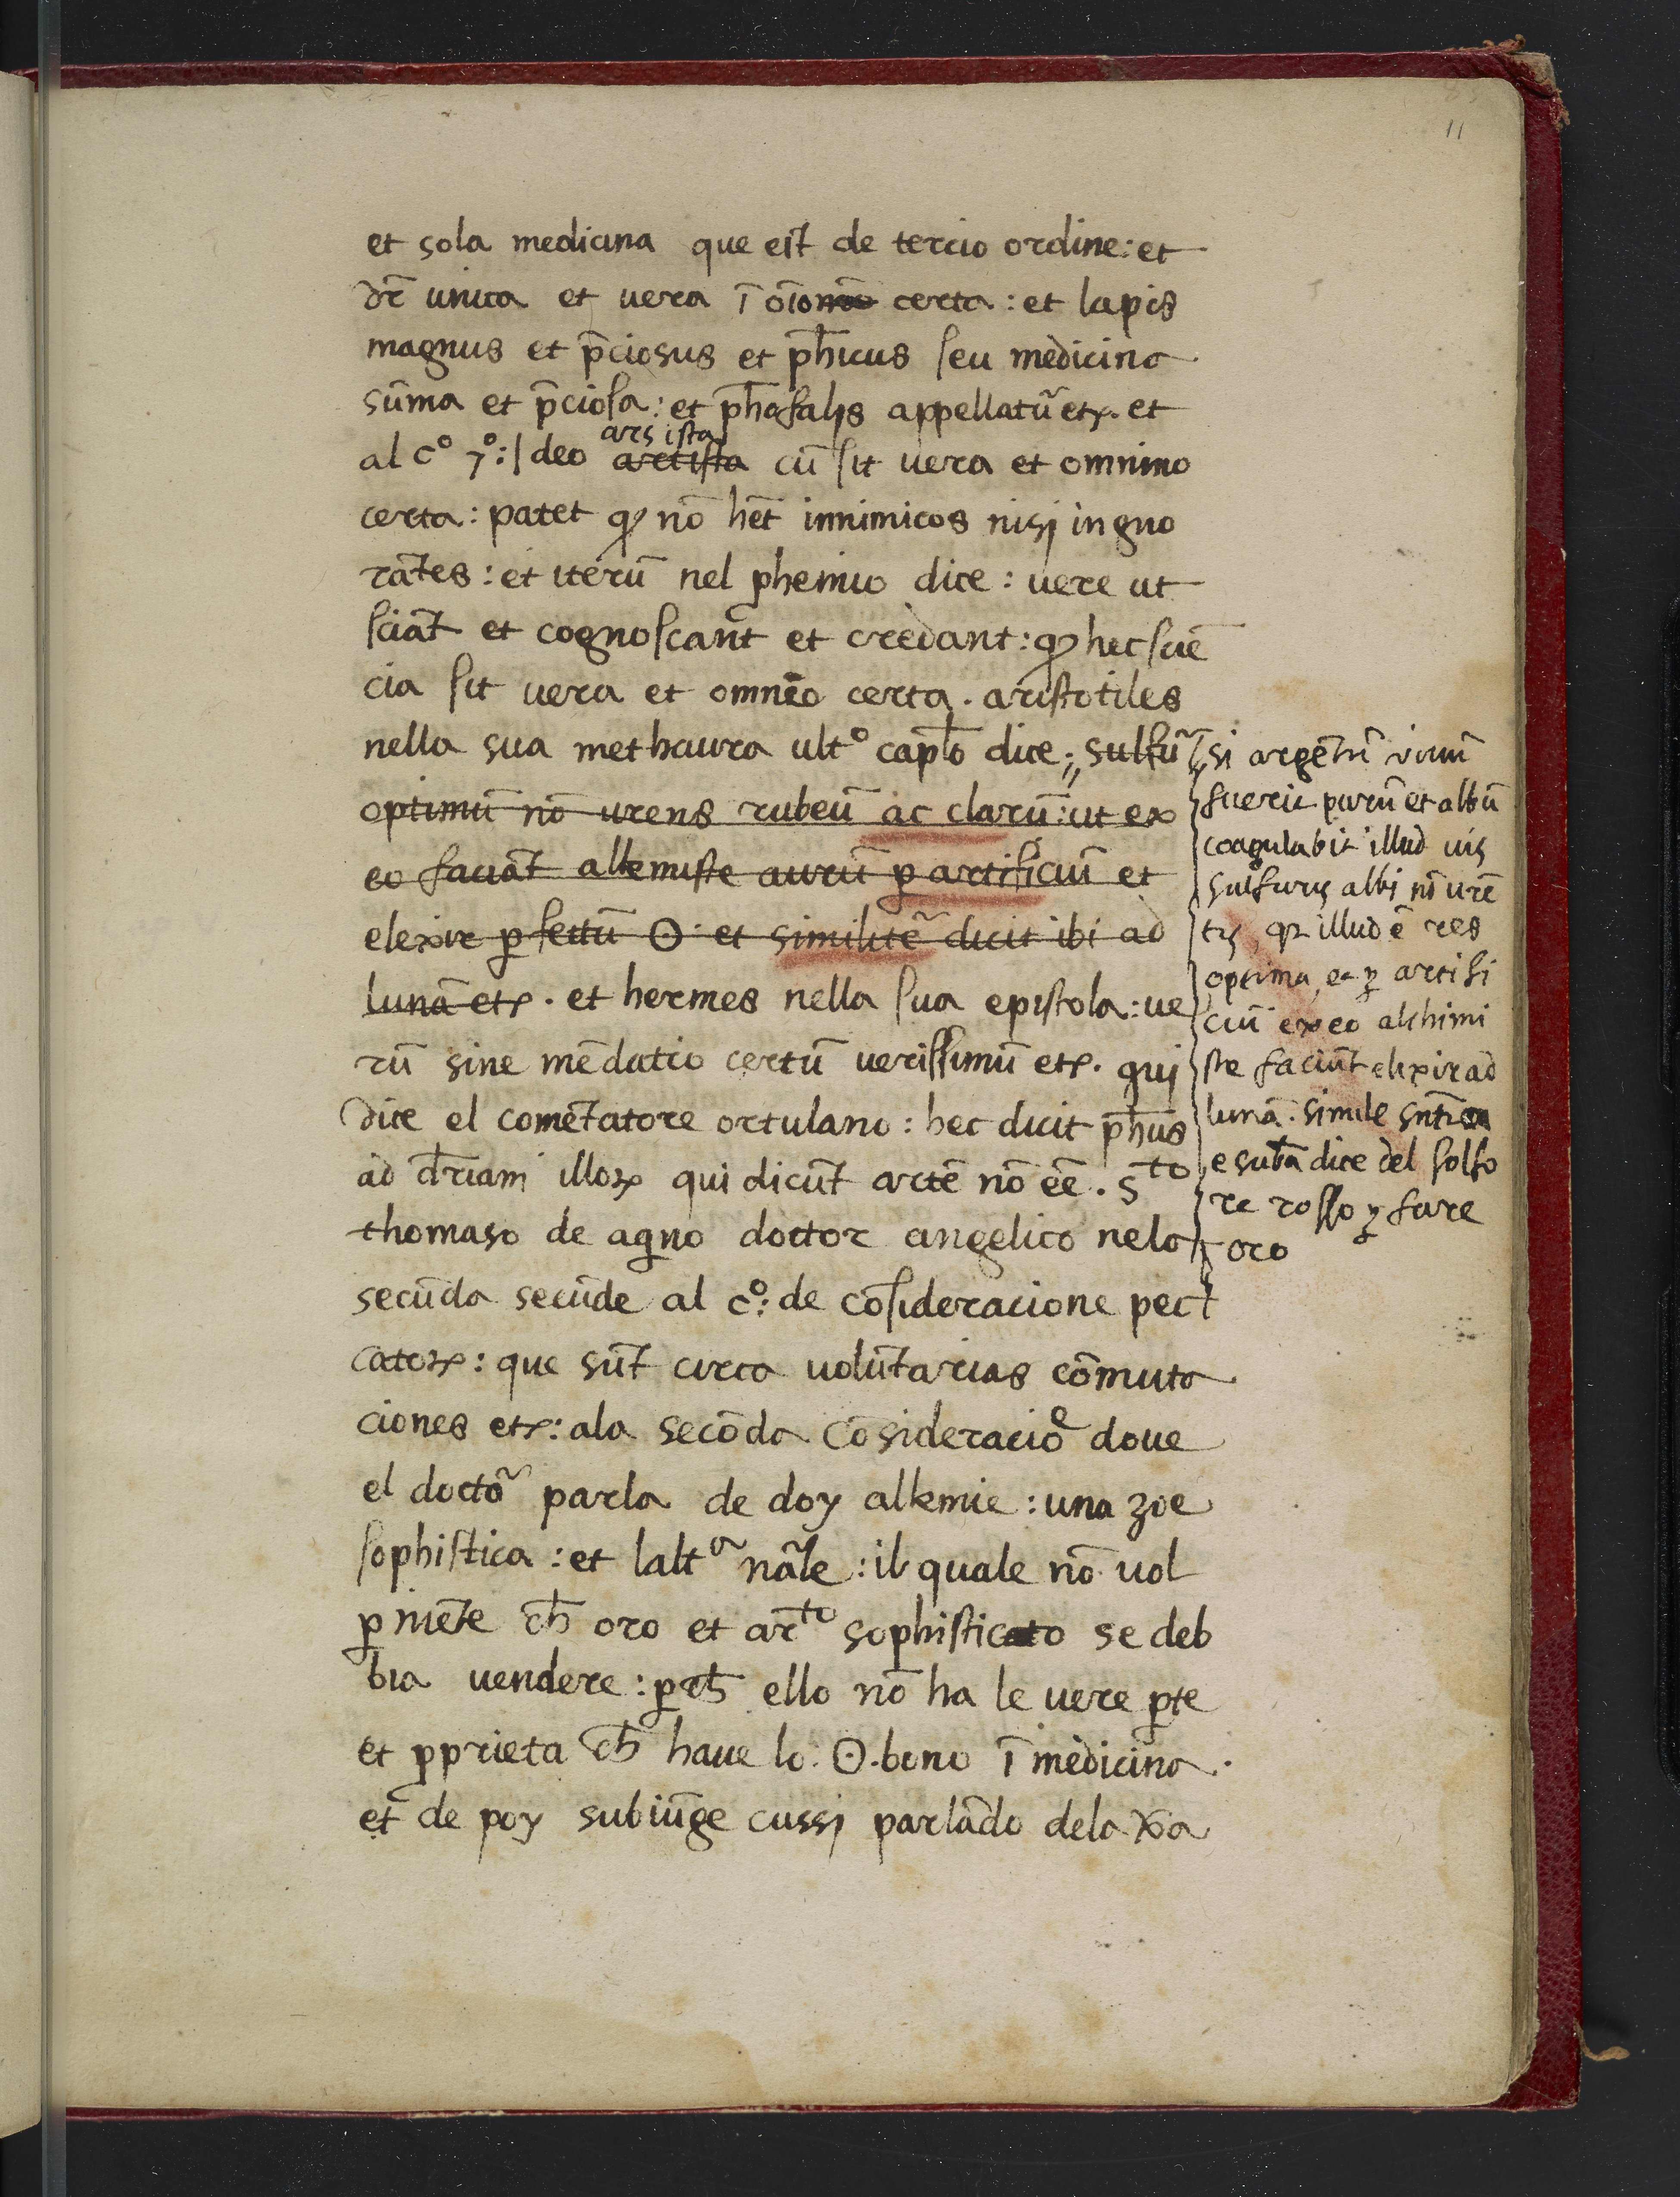 11
et sola medicina que est de tercio ordine: et
dr̄ unica et uera ī oīo certa: et lapis
magnus et p̄ciosus et ph̄icus seu medicina
sūma et p̄ciosa: et ph̄asalis appellatũ etꝝ. et
al cº 7º: Ideo artista cū sit uera et omnino
ars ista
certa: patet qꝫ nō hēt innimicos nisj in gno
rātes: et iterū nel phemio dice: uere ut
sciāt et cognoscānt et credant: qꝫ hec sciē
cia sit uera et omnēo certa. aristotiles
nella sua methaura ultº capl̄o dice: sulfũ
optimū nō urens rubeū ac clarū: ut ex
eo faciāt alkemiste aurū ꝑ artificiū et
elexir ꝑfectū ☉: et similitẽ dicit ibi ad
lunā etꝝ. et hermes nella sua epistola: ue
rū sine mēdatio certū uerissimū etꝝ. quj
dice el comētatore ortulano: hec dicit ph̄us
ad d̄riam illoꝝ qui dicūt artē nō eē. sᵗᵒ
thomaso de aq̄no doctor angelico nela
secūda secūde al cº: de cōsideracione pect
catoꝝ: que sūt circa uolūtarias cōmuta
ciones etꝝ: ala secōda cōsideracioᵉ doue
el doctõ parla de doy alkemie: una zoe
sophistica: et laltᵃ nāle: il quale nō uol
ꝑ niēte ch̄ oro et arᵗᵒ sophisticato se deb
bia uendere: ꝑch̄ ello nō ha le uere ꝑte
et ꝓprieta ch̄ haue lo ☉. bono ī medicina.
et de poy subiūge cussj parlādo dela xᵃ
si argētū viuū
fuerit purū et albū
coagulabit illud uis
sulfuris albi nō urē
tis, qꝫ illud ē res
optima, et ꝑ artifi
ciū ex eo alchimi
ste faciūt elixir ad
lunā. simile sn̄tia
e subā dice del solfo
re rosso ꝑ fare
oro